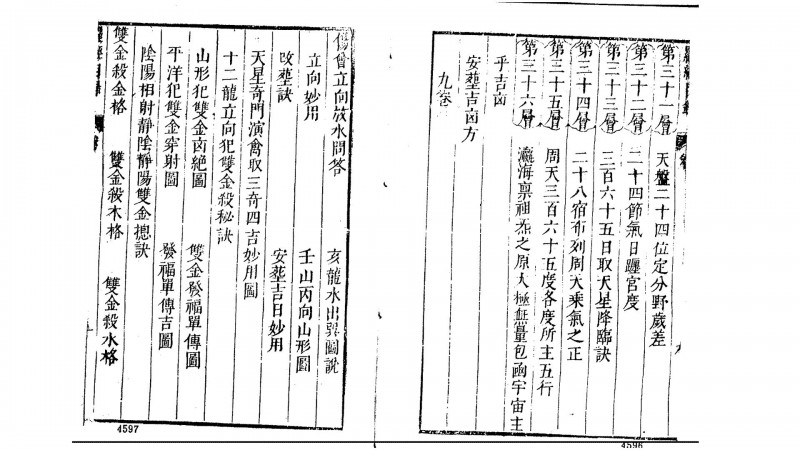 第三十一層 天盤二十四位定分野歲差
第三十二層 二十四節氣日躔宮度
第三十三層 三百六十五日取天星降臨訣
第三十四層 二十八宿布列周天乘氣之正
第三十五層 周天三百六十五度各度所主五行
第三十六層 瀛海稟祖炁之原大極無量包函宇宙主
乎吉凶
安塟吉凶方
九卷
4596
會立向放水問答 亥龍水出巽圖說
立向妙用 壬山丙向山形圖
改塟訣 安塟吉日妙用
天星奇門演禽取三奇四吉妙用圖
十二龍立向犯雙金殺秘訣
山形犯雙金凶絕圖 雙金發福單傳圖
平洋犯雙金穿射圖 發福單傳吉圖
陰陽相射靜陰靜陽雙金摠訣
雙金殺金格 雙金殺木格 雙金殺水格
4597